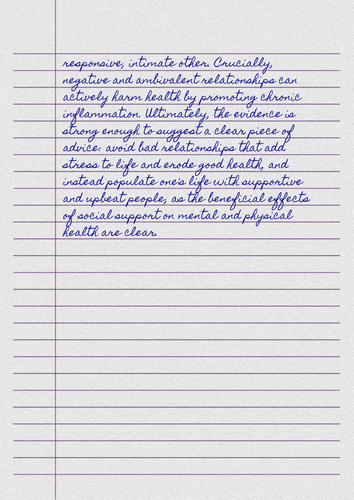 responsive, intimate other. Crucially,
negative and ambivalent relationships can
actively harm health by promoting chronic
inflammation. Ultimately, the evidence is
strong enough to suggest a clear piece of
advice: avoid bad relationships that add
stress to life and erode good health, and
instead populate one's life with supportive
and upbeat people, as the beneficial effects
of social support on mental and physical
health are clear.